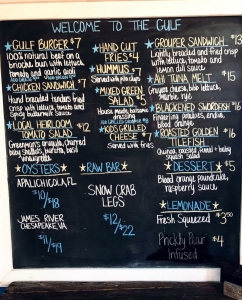 WELCOME TO THE GULF
GULF BURGER $7
100% natural beef on a brioche bun with lettuce, tomato and garlic aioli
CHICKEN SANDWICH 7
Hand breaded tenders fried crisp with lettuce, tomato and spicy buttermilk sauce
LOCAL HEIRLOOM $12
TOMATO SALAD
vinaigrette
OYSTERS
APALICHICOLA, FL
$10/$18
JAMES RIVER
CHESAPEAKE, VA
$11/$19
HAND CUT $4
FRIES
HUMMUS $7
Served with pita
MIXED GREEN $5
SALAD
House made buttermilk dressing
KIDS GRILLED $7
CHEESE
Served with fries
RAW BAR
SNOW CRAB
LEGS
$12/$22
GROUPER SANDWICH $13
Lightly breaded and fried crisp with lettuce, tomato and lemon dill sauce
AHI TUNA MELT $15
BLACKENED SWORDFISH $16
ROASTED GOLDEN $16
TILEFISH
squash salad
DESSERT $5
Blood orange poundcake, raspberry sauce
LEMONADE
Fresh Squeezed $3.50
Prickly Pear
Infused $4